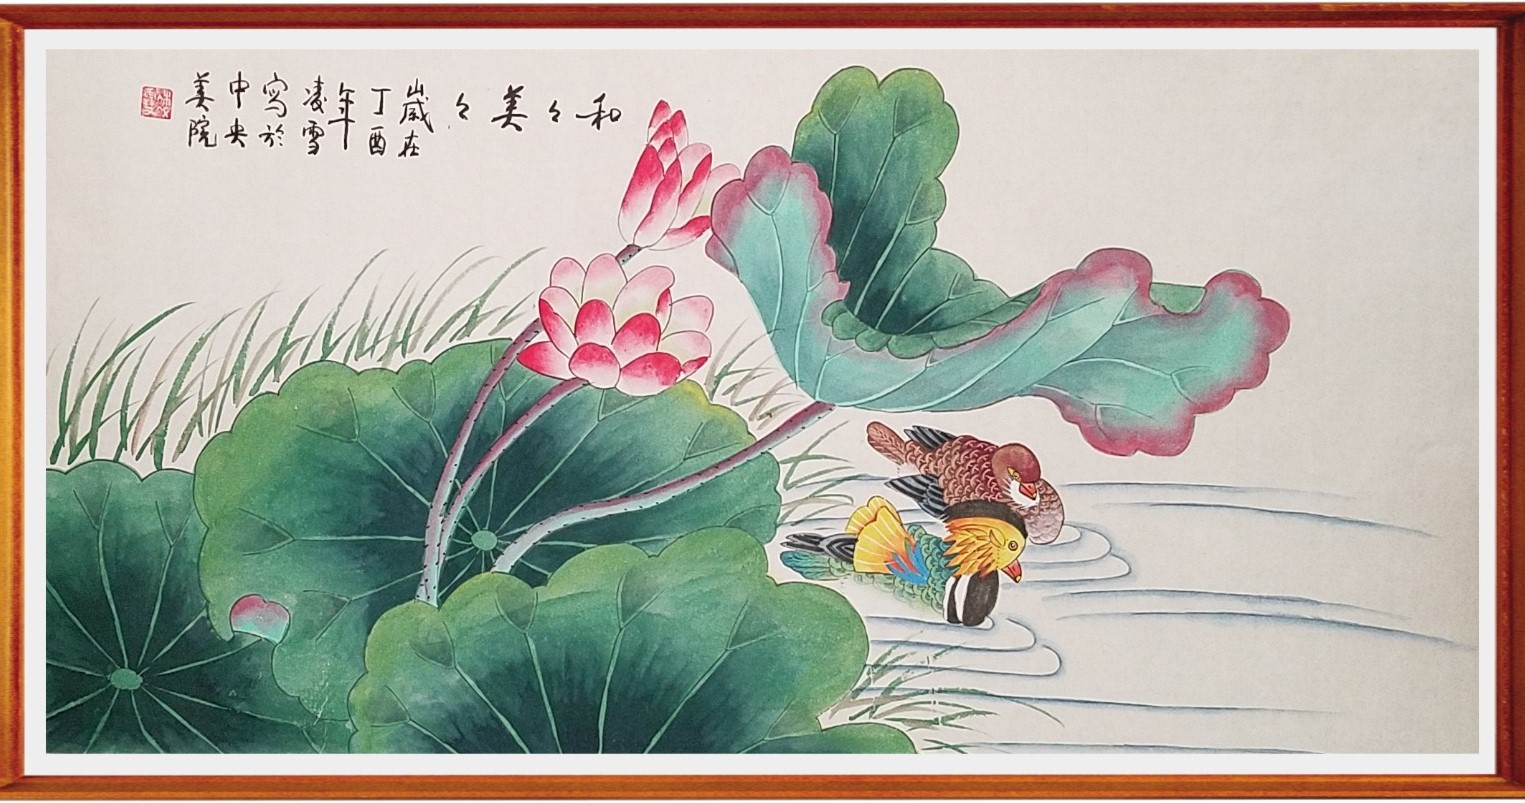 和々美々
歲在
丁酉
年
凌雪
寫於
中央
美院